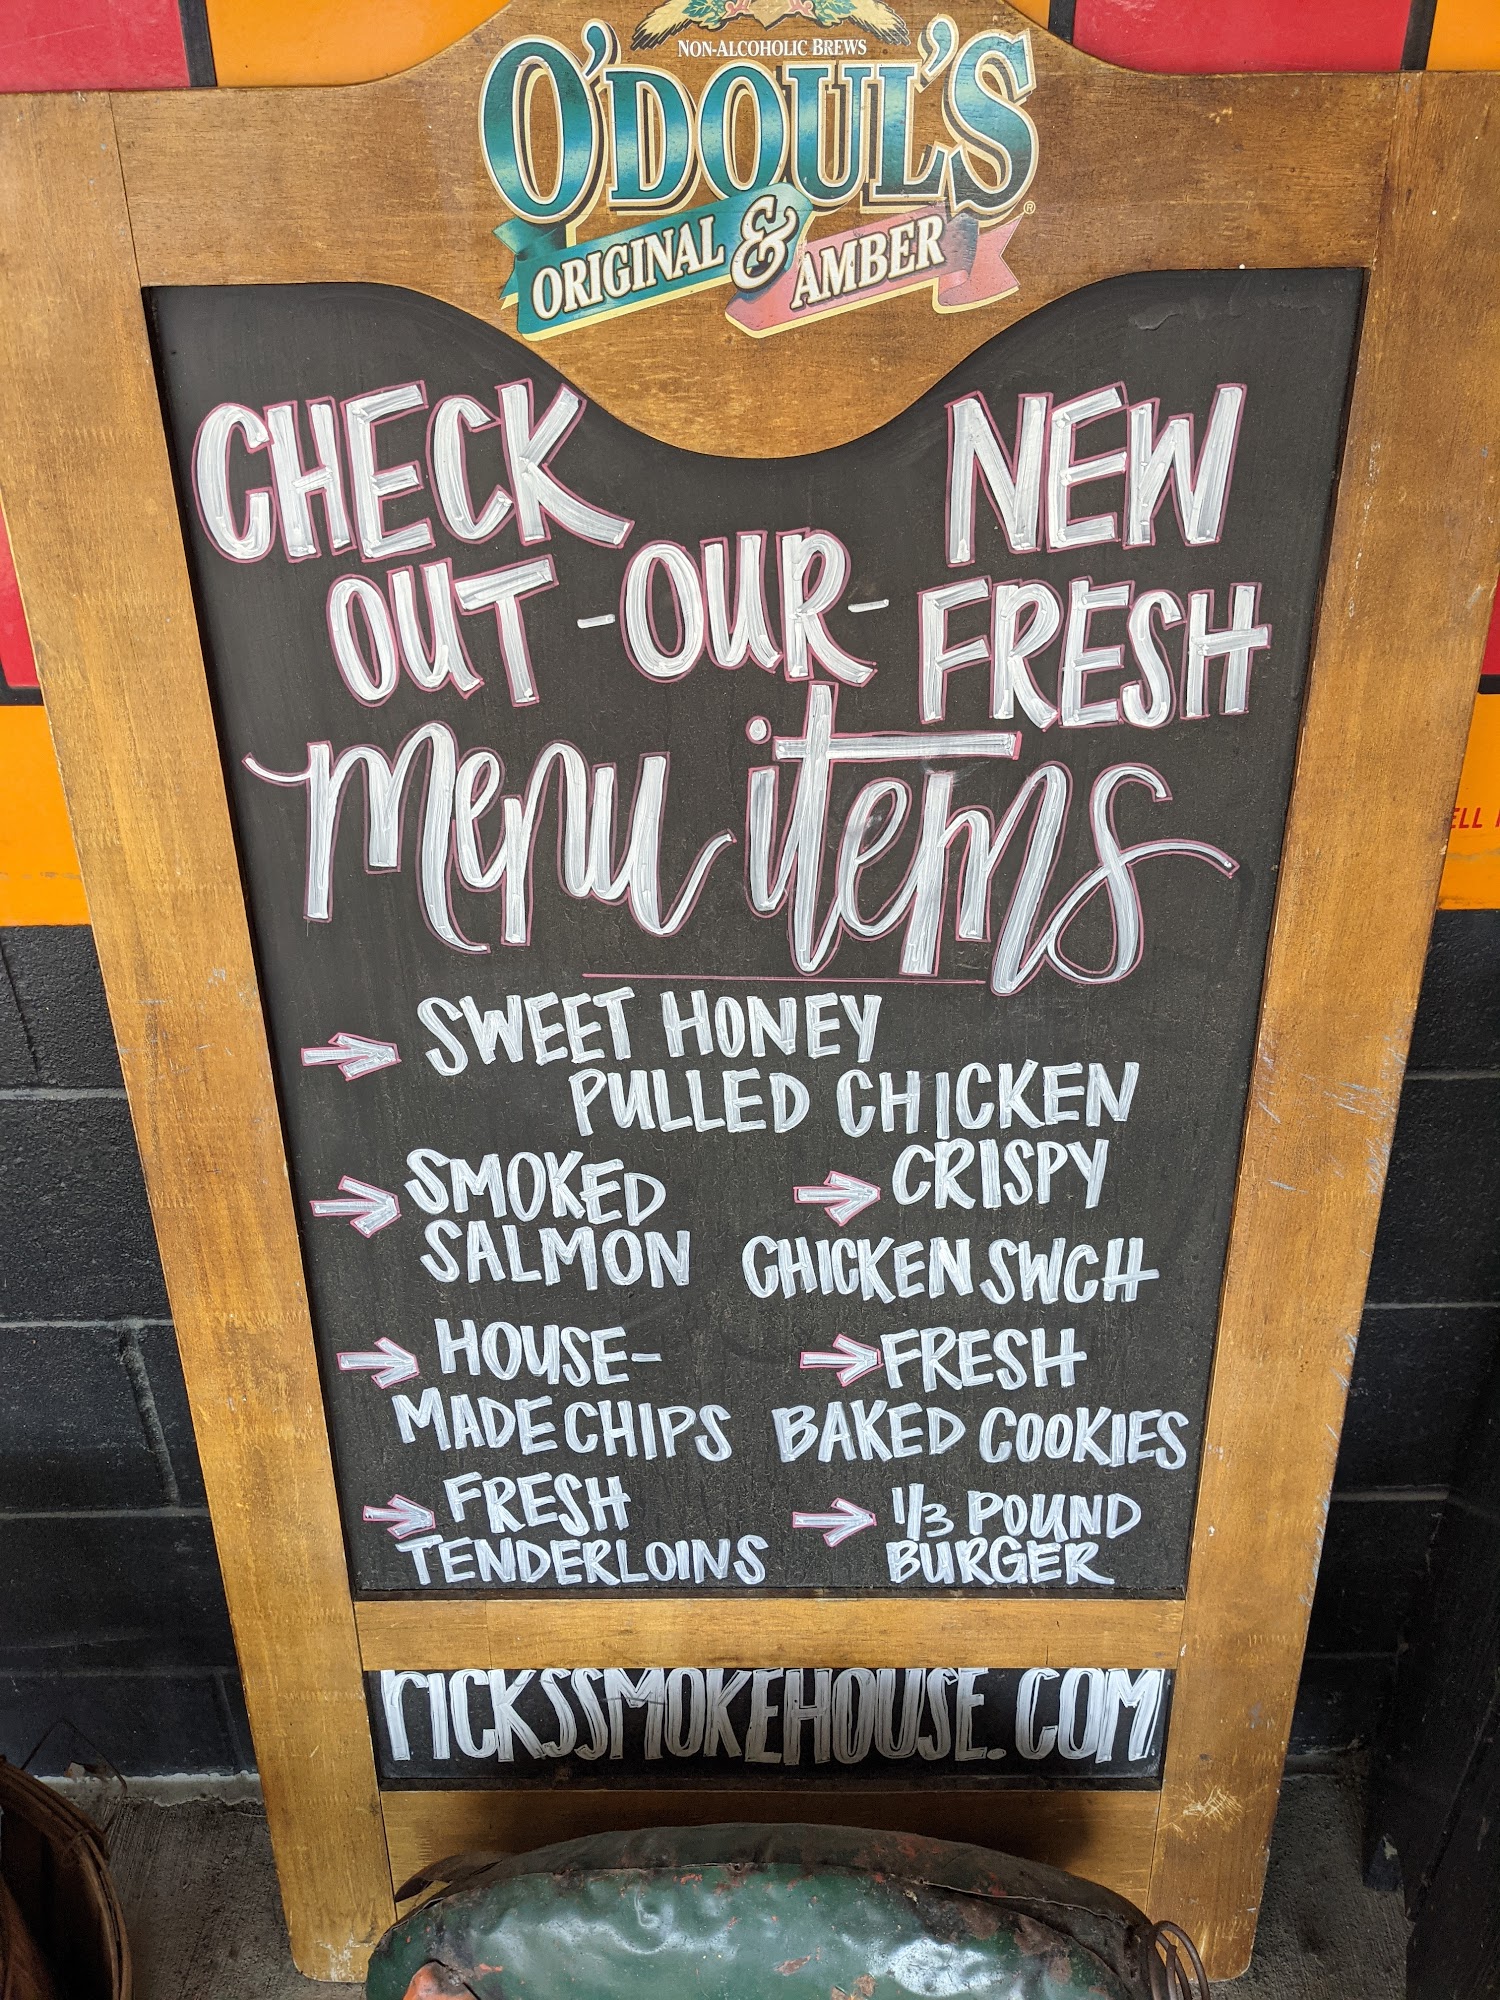 NON-ALCOHOLIC BREWS
O'DOUL'S
ORIGINAL & AMBER
CHECK NEW
OUT -OUR- FRESH
menu items
SWEET HONEY
PULLED CHICKEN
SMOKED
SALMON
CRISPY
CHICKEN SWCH
HOUSE-
MADE CHIPS
FRESH
BAKED COOKIES
FRESH
TENDERLOINS
1/3 POUND
BURGER
rICKSSMOKEHOUSE.COM